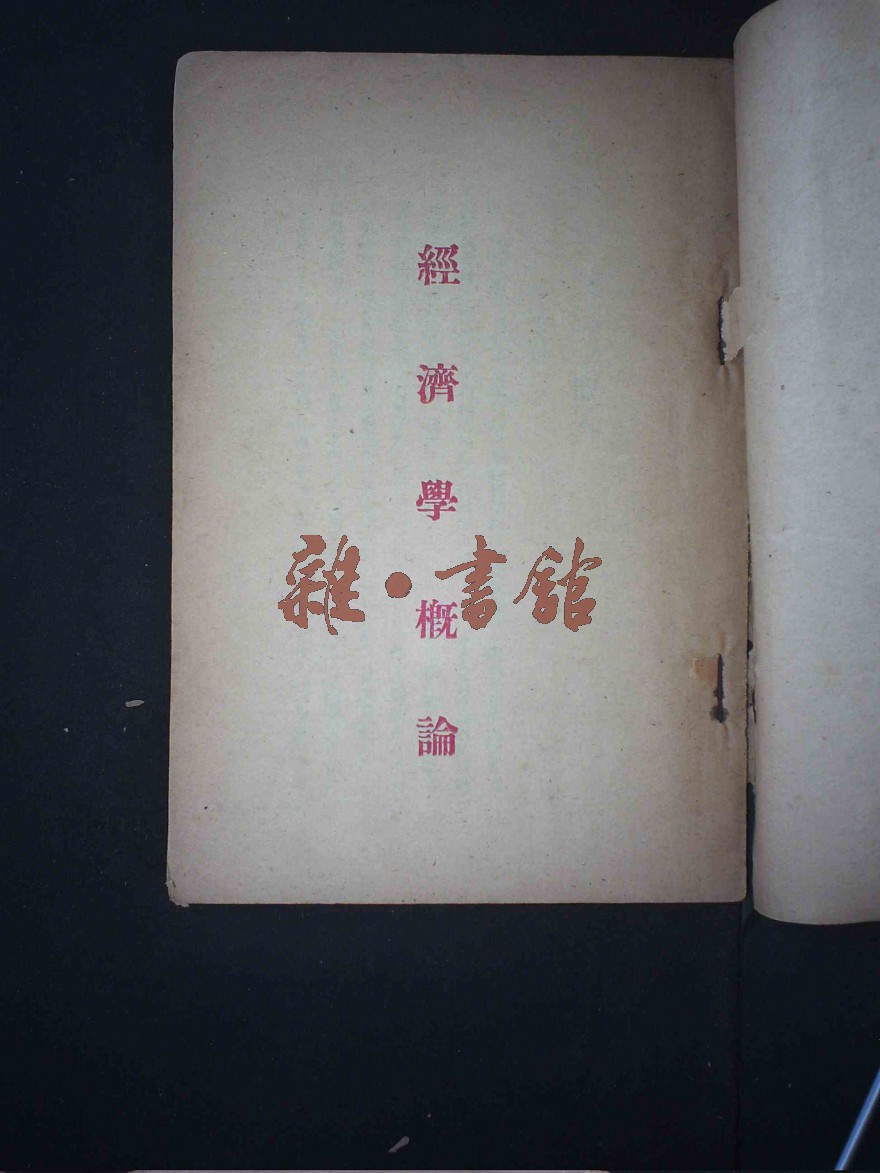 經濟學概論
雜·書館